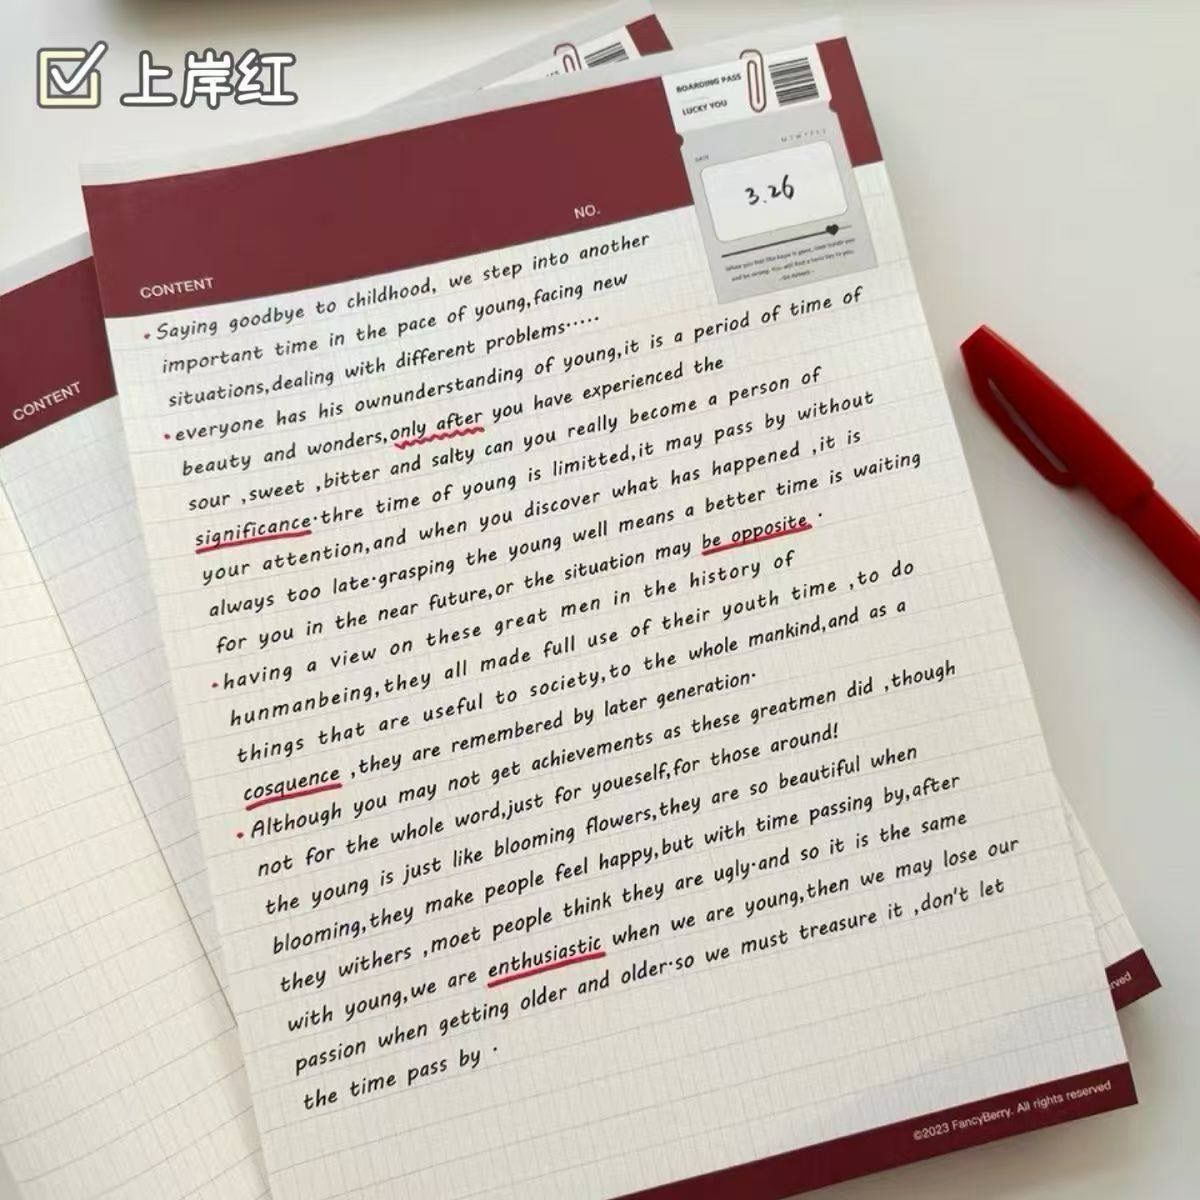 上岸红
BOARDING PASS
LUCKY YOU
M T W T F S S
DATE
3.26
NO.
CONTENT
CONTENT
•Saying goodbye to childhood, we step into another
important time in the pace of young,facing new
situations,dealing with different problems·····
•everyone has his ownunderstanding of young,it is a period of time of
beauty and wonders,only after you have experienced the
sour ,sweet ,bitter and salty can you really become a person of
significance·thre time of young is limitted,it may pass by without
your attention,and when you discover what has happened ,it is
always too late·grasping the young well means a better time is waiting
for you in the near future,or the situation may be opposite ·
•having a view on these great men in the history of
hunmanbeing,they all made full use of their youth time ,to do
things that are useful to society,to the whole mankind,and as a
cosquence ,they are remembered by later generation·
•Although you may not get achievements as these greatmen did ,though
not for the whole word,just for youeself,for those around!
the young is just like blooming flowers,they are so beautiful when
blooming,they make people feel happy,but with time passing by,after
they withers ,moet people think they are ugly·and so it is the same
with young,we are enthusiastic when we are young,then we may lose our
passion when getting older and older·so we must treasure it ,don't let
the time pass by ·
©2023 FancyBerry. All rights reserved